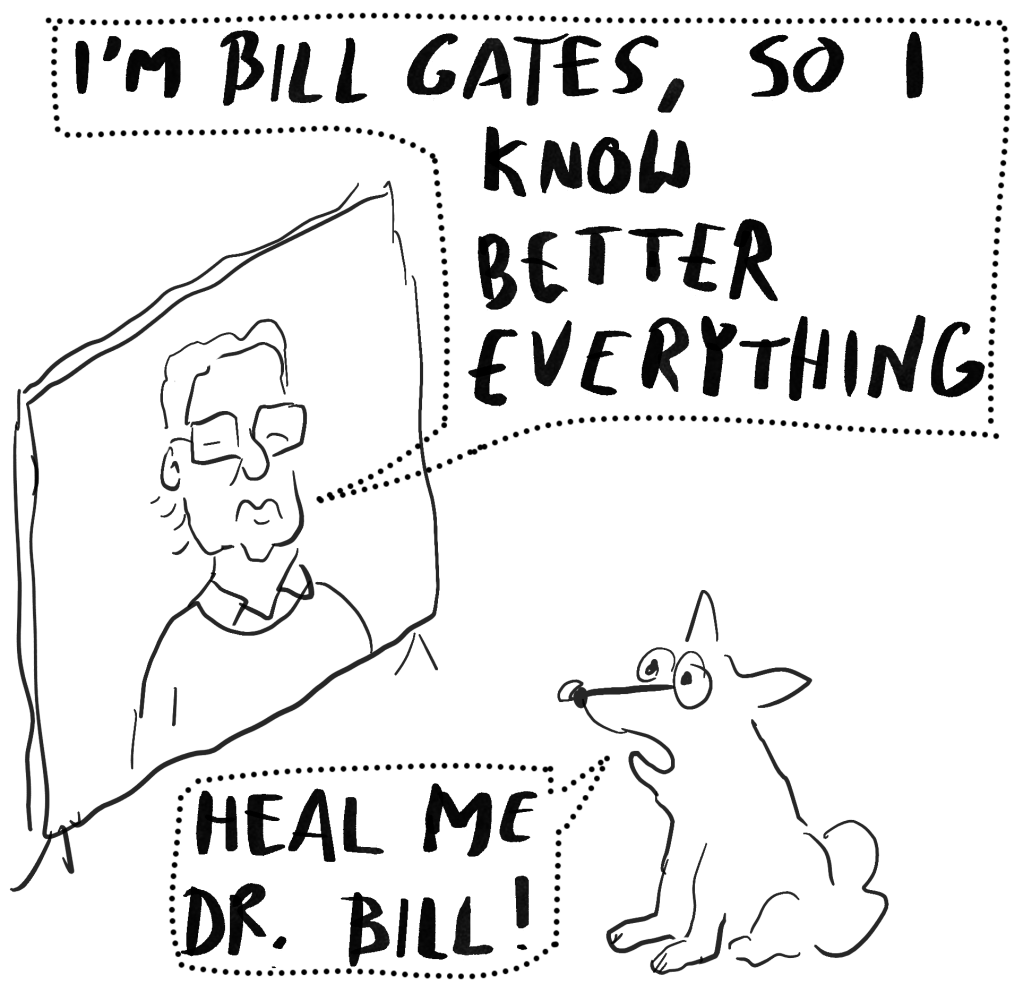 I'M BILL GATES, SO I
KNOW
BETTER
EVERYTHING
HEAL ME
DR. BILL!